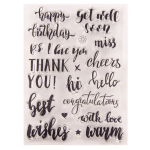 happy birthday
get well soon
P.S. I love you
miss
THANK YOU!
cheers
hi
hello
best
congratulations
with love
wishes
warm